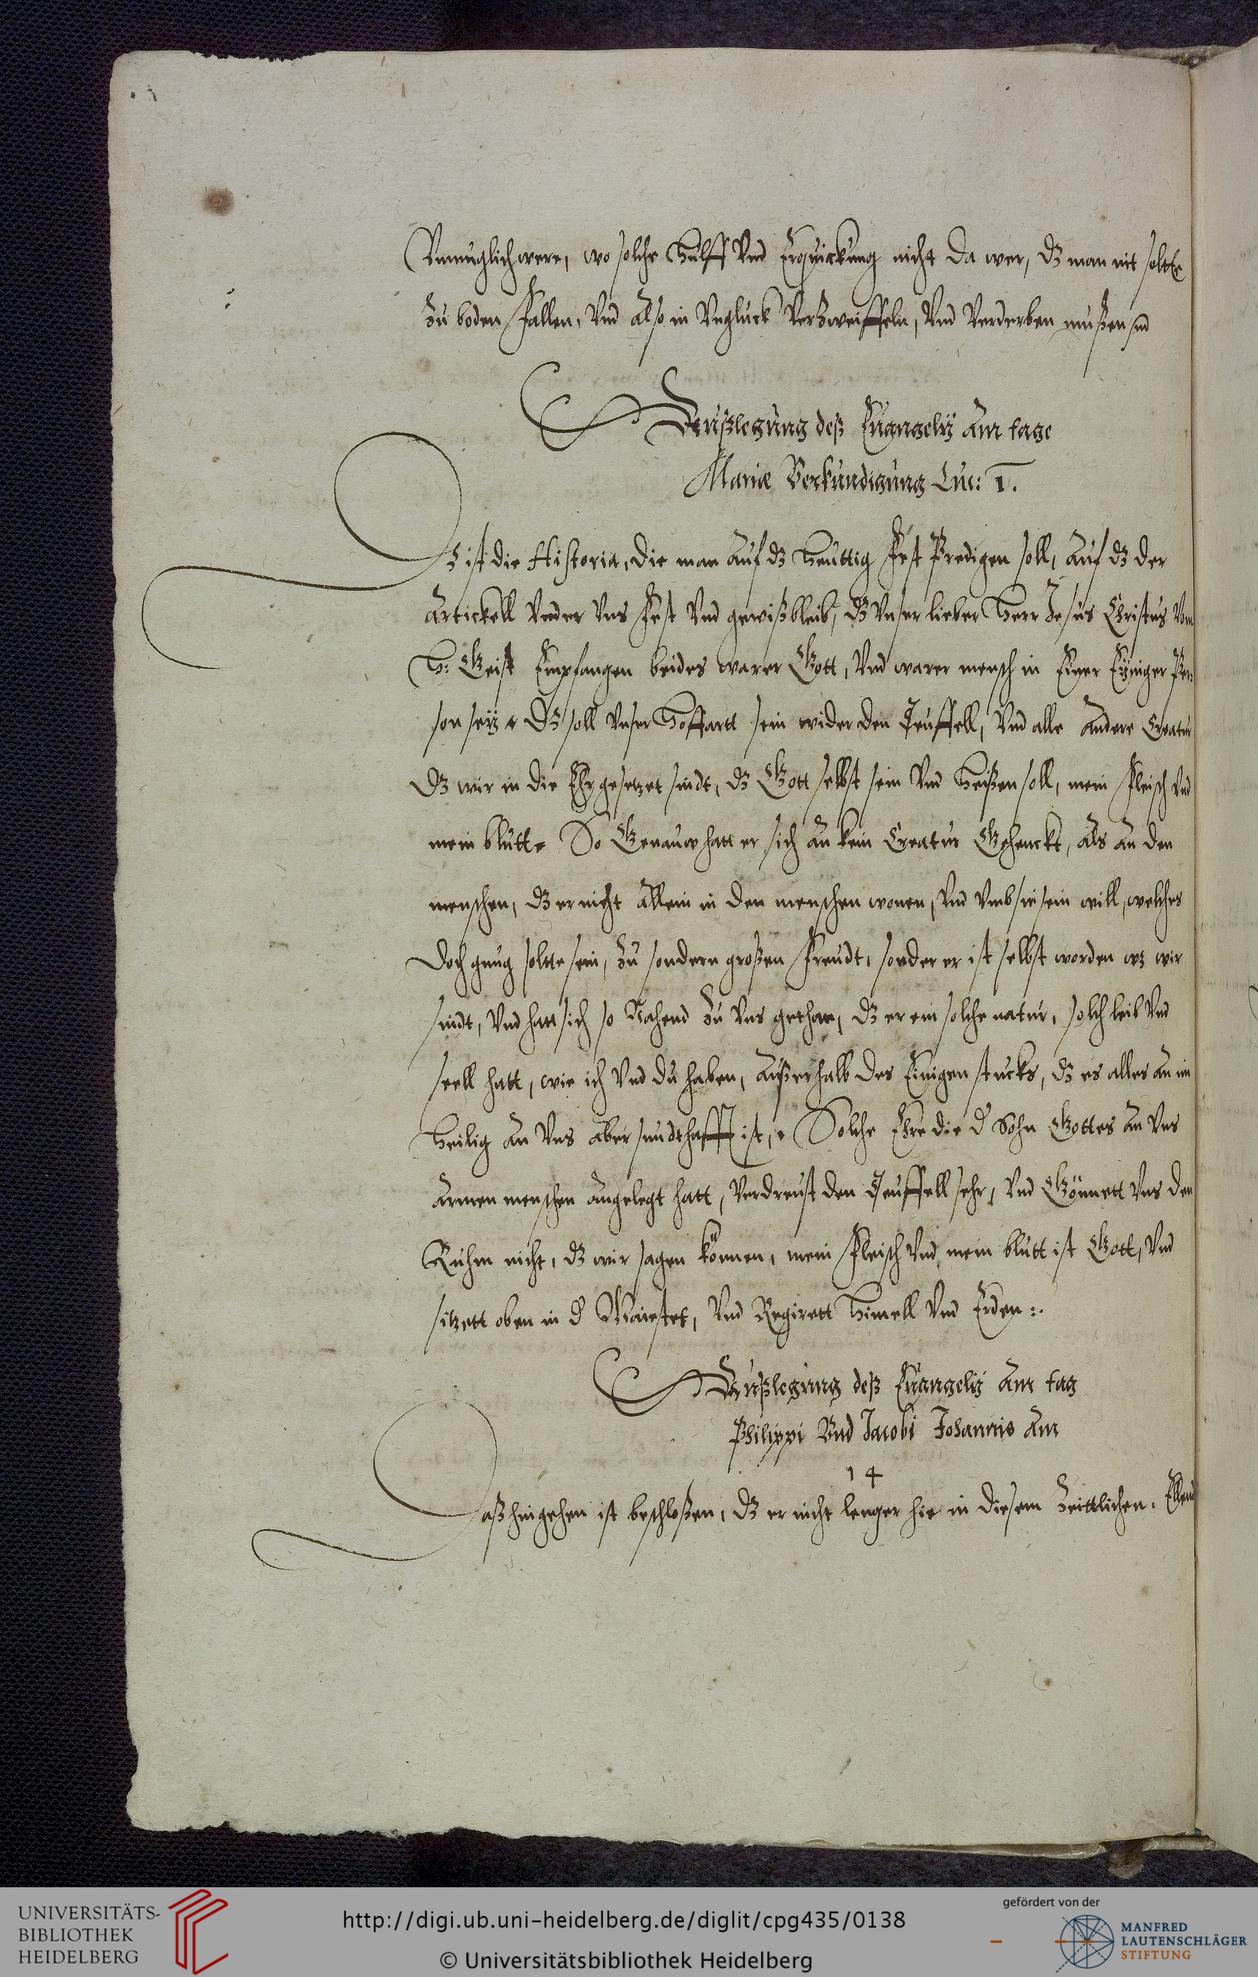 Vnmuglich were, wo solche Hulff Vnd Erquickung nicht da wer, dz man nit solte
Zu boden fallen, Vnd also in Vngluck Verzweiffeln, Vnd Verderben mußen
Außlegung deß Euangelÿ Am tage
Mariæ Verkundigung Luc: 1.
Dz ist die Historia, die man Auf dz Heuttig fest Predigen soll, Auf dz der
Artickell Vnder Vns fest Vnd gewiß bleib, dz Vnser lieber Herr Jesus Christus Vom
H: Geist Empfangen beides warer Gott, Vnd warer mensch in Einer Einiger Per-
son seÿ. Dz soll Vnser Hoffartt sein wider den Teuffell, Vnd alle Andere Creatur
Dz wir in die Ehr gesetzet sindt, dz Gott selbst sein Vnd Heißen soll, mein fleisch Vnd
mein blutt. So Genauw hatt er sich an kein Creatur Gehenckt, als an den
menschen, dz er nicht Allein in den menschen wonen, Vnd Vmb sie sein will, welches
doch gnug solte sein, Zu sondern großen freudt, sonder er ist selbst worden wz wir
sindt, Vnd hatt sich so Nahend Zu Vns gethan, dz er ein solche natur, solch leib Vnd
seell hatt, wie ich Vnd du haben, Außerhalb des Einigen stucks, dz es alles an im
Heilig an Vns aber sundthafft ist, Solche Ehre die d Sohn Gottes an Vns
Armen menschen angelegt hatt, Verdreust den Teuffell sehr, Vnd Gönnett Vns den
Ruhm nicht, dz wir sagen können, mein fleisch Vnd mein blutt ist Gott, Vnd
sitzett oben in d Maiestet, Vnd Regirett Himell Vnd Erden :.
Außlegung deß Euangelÿ Am tag
Philippi Vnd Jacobi Johannis Am
14
Daß hingehen ist beschloßen, dz er nicht lenger hie in diesem Zeittlichen, Ellend
UNIVERSITÄTS-
BIBLIOTHEK
HEIDELBERG
http://digi.ub.uni-heidelberg.de/diglit/cpg435/0138
© Universitätsbibliothek Heidelberg
gefördert von der
MANFRED
LAUTENSCHLÄGER
STIFTUNG